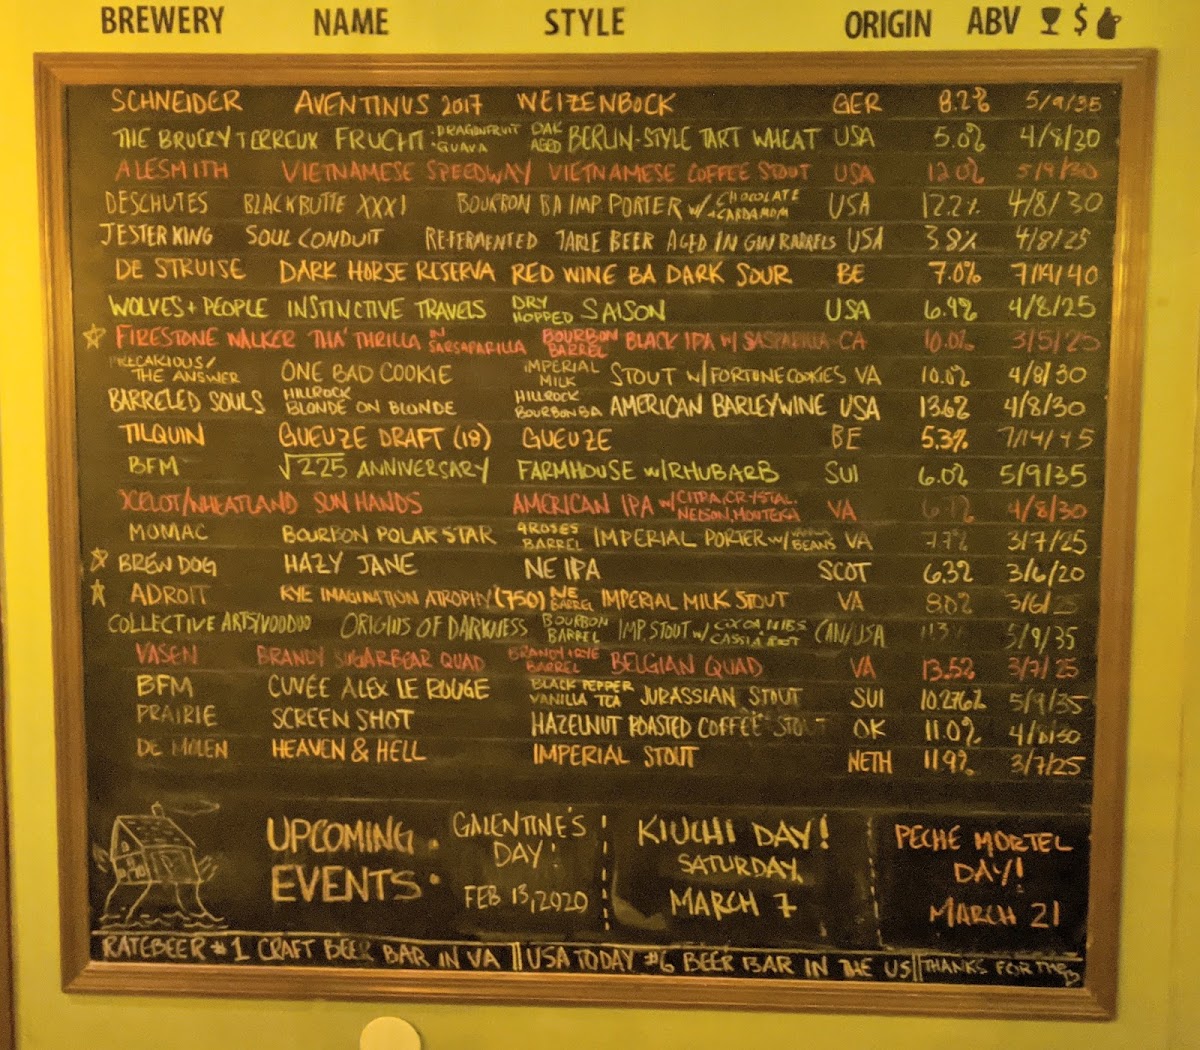 BREWERY NAME STYLE ORIGIN ABV $
SCHNEIDER AVENTINUS 2017 WEIZENBOCK GER 8.2% 5/9/35
THE BRUERY TERREUX FRUCHT • DRAGONFRUIT • GUAVA OAK AGED BERLIN-STYLE TART WHEAT USA 5.0% 4/8/30
ALESMITH VIETNAMESE SPEEDWAY VIETNAMESE COFFEE STOUT USA 12.0% 5/9/30
DESCHUTES BLACK BUTTE XXXI BOURBON BA IMP PORTER W/ CHOCOLATE + CARDAMOM USA 12.2% 4/8/30
JESTER KING SOUL CONDUIT REFERMENTED TABLE BEER AGED IN GIN BARRELS USA 3.8% 4/8/25
DE STRUISE DARK HORSE RESERVA RED WINE BA DARK SOUR BE 7.0% 7/14/40
WOLVES + PEOPLE INSTINCTIVE TRAVELS DRY HOPPED SAISON USA 6.4% 4/8/25
FIRESTONE WALKER THA' THRILLA IN SARSAPARILLA BOURBON BARREL BLACK IPA W/ SASPARILLA CA 10.0% 3/5/25
PRECARIOUS/ THE ANSWER ONE BAD COOKIE IMPERIAL MILK STOUT W/ FORTUNE COOKIES VA 10.0% 4/8/30
BARRELED SOULS HILLROCK BLONDE ON BLONDE HILLROCK BOURBON BA AMERICAN BARLEYWINE USA 13.6% 4/8/30
TILQUIN GUEUZE DRAFT (18) GUEUZE BE 5.3% 7/14/45
BFM √225 ANNIVERSARY FARMHOUSE W/ RHUBARB SUI 6.0% 5/9/35
XCELOT/WHEATLAND SUN HANDS AMERICAN IPA W/ CITRA, CRYSTAL, NELSON, MOUTEKA VA 4/8/30
MOMAC BOURBON POLAR STAR 4 ROSES BARREL IMPERIAL PORTER W/ BEANS VA 7.7% 3/7/25
BREWDOG HAZY JANE NE IPA SCOT 6.3% 3/6/20
ADROIT RYE IMAGINATION ATROPHY (750) RYE BARREL IMPERIAL MILK STOUT VA 8.0% 3/6/25
COLLECTIVE ARTS/VOODOO ORIGINS OF DARKNESS BOURBON BARREL IMP STOUT W/ COCOA NIBS CASSIA ROOT CAN/USA 5/9/35
VASEN BRANDY SUGARBEAR QUAD BRANDY + RYE BARREL BELGIAN QUAD VA 13.5% 3/7/25
BFM CUVÉE ALEX LE ROUGE BLACK PEPPER VANILLA TEA JURASSIAN STOUT SUI 10.276% 5/9/35
PRAIRIE SCREEN SHOT HAZELNUT ROASTED COFFEE STOUT OK 11.0% 4/8/30
DE MOLEN HEAVEN & HELL IMPERIAL STOUT NETH 11.9% 3/7/25
UPCOMING EVENTS:
GALENTINE'S DAY!
FEB 13, 2020
KIUCHI DAY!
SATURDAY,
MARCH 7
PECHE MORTEL
DAY!
MARCH 21
RATEBEER #1 CRAFT BEER BAR IN VA || USA TODAY #6 BEER BAR IN THE US || THANKS FOR THE